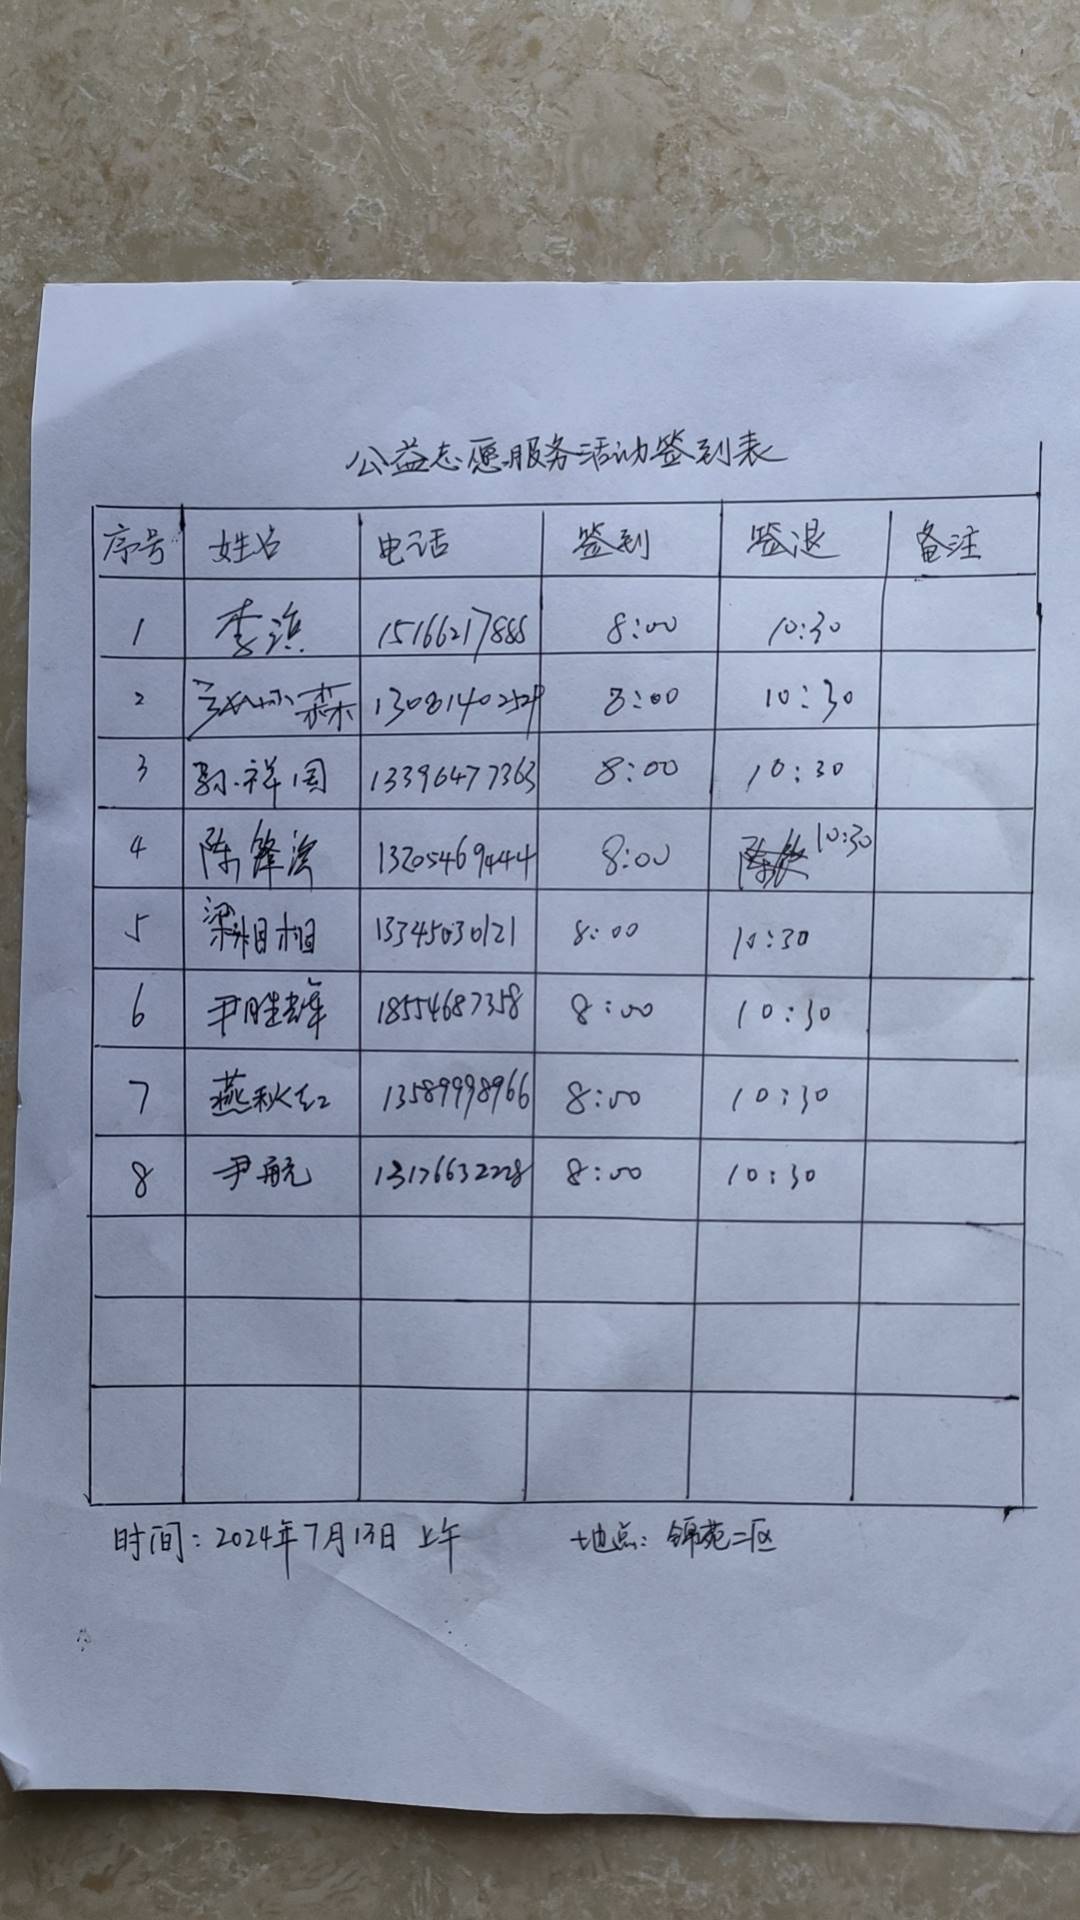 公益志愿服务活动签到表
序号 姓名 电话 签到 签退 备注
1 李滨 15166217888 8:00 10:30
2 森 13081402529 8:00 10:30
3 孙祥国 13396477363 8:00 10:30
4 陈锋 13205469444 8:00 10:30
5 梁相相 13345030121 8:00 10:30
6 尹胜辉 18554687358 8:00 10:30
7 燕秋红 13589998966 8:00 10:30
8 尹航 13176632228 8:00 10:30
时间：2024年7月13日 上午 地点：锦苑二区